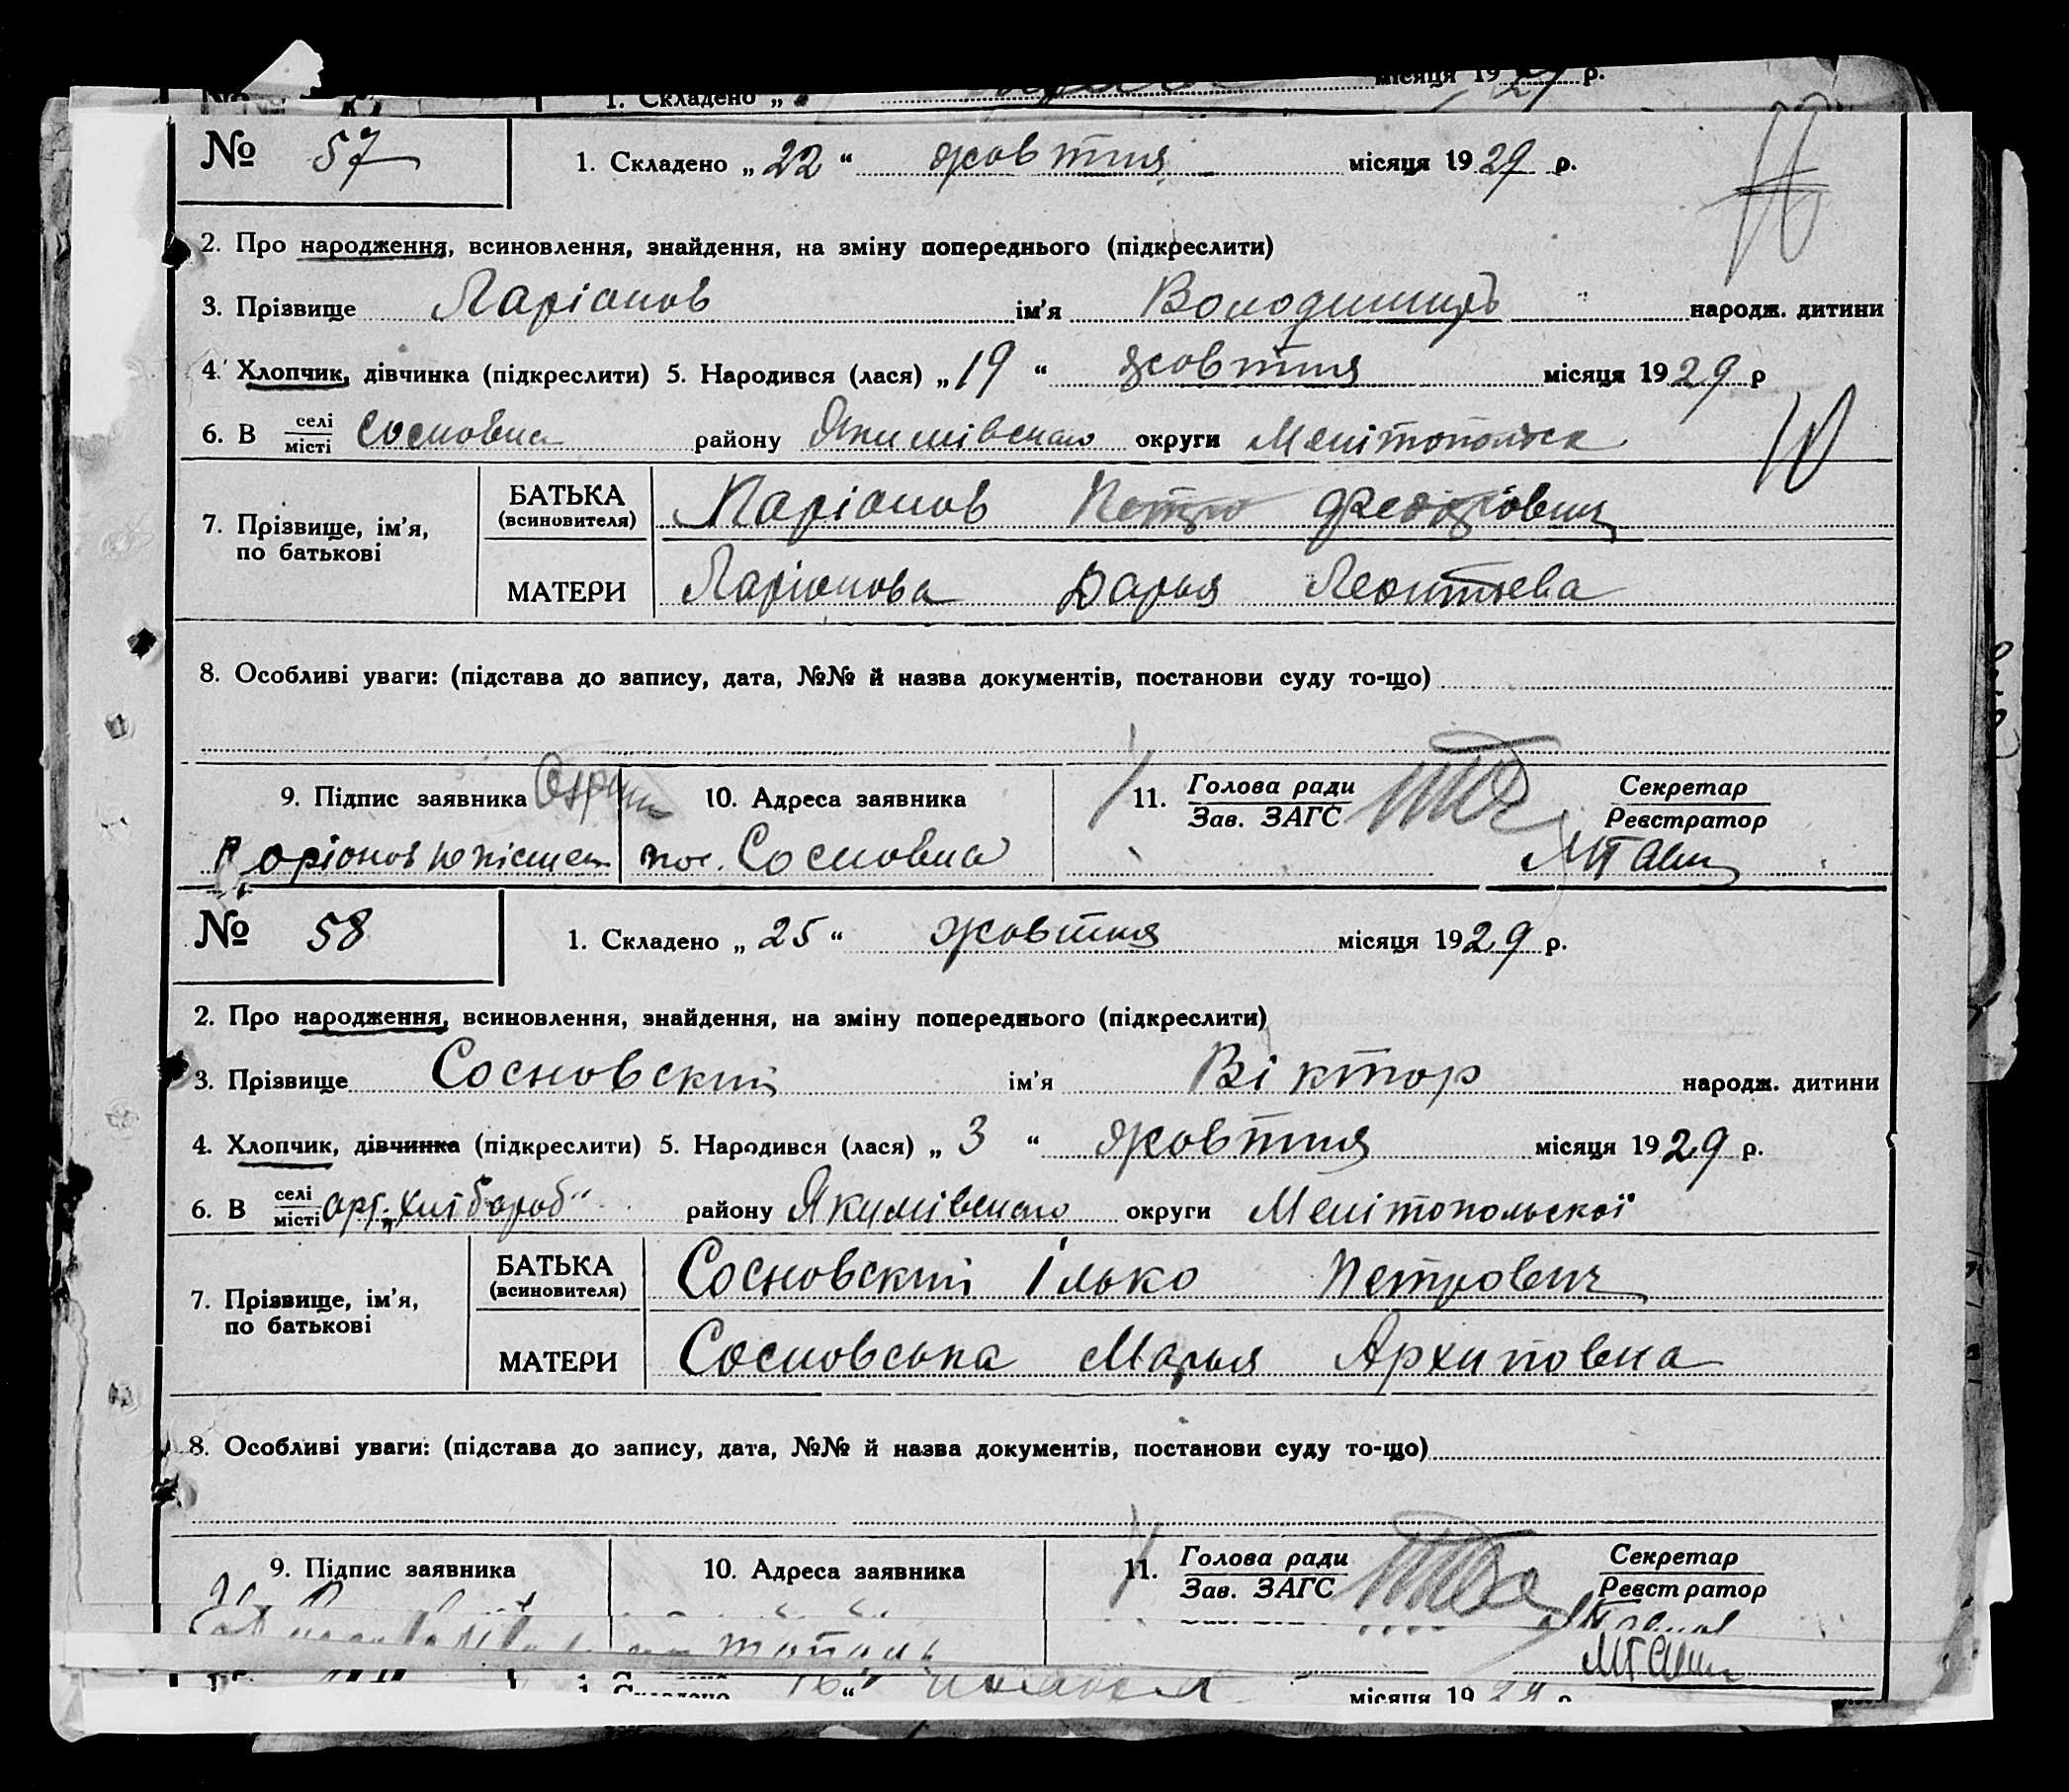 1. Складено „ місяця 1929 р.
№ 57 1. Складено „22“ жовтня місяця 1929 р.
2. Про народження, всиновлення, знайдення, на зміну попереднього (підкреслити)
3. Прізвище Ларіонов ім’я Володимиръ народж. дитини
4. Хлопчик, дівчинка (підкреслити) 5. Народився (лася) „19“ жовтня місяця 1929 р
6. В селі місті Сосновка району Якимівского округи Мелітопольск
БАТЬКА (всиновителя) Ларіонов Петро Федорович
7. Прізвище, ім’я, по батькові
МАТЕРИ Ларіонова Дарья Леонтьева
8. Особливі уваги: (підстава до запису, дата, №№ й назва документів, постанови суду то-що)
9. Підпис заявника 10. Адреса заявника 11. Голова ради Зав. ЗАГС Секретар Реєстратор
Ларіонов пос. Сосновка
№ 58 1. Складено „25“ жовтня місяця 1929 р.
2. Про народження, всиновлення, знайдення, на зміну попереднього (підкреслити)
3. Прізвище Сосновский ім’я Віктор народж. дитини
4. Хлопчик, дівчинка (підкреслити) 5. Народився (лася) „3“ жовтня місяця 1929 р.
6. В селі місті арт. „Хліброб“ району Якимівского округи Мелітопольскої
БАТЬКА (всиновителя) Сосновский Ілько Петрович
7. Прізвище, ім’я, по батькові
МАТЕРИ Сосновська Марья Архиповна
8. Особливі уваги: (підстава до запису, дата, №№ й назва документів, постанови суду то-що)
9. Підпис заявника 10. Адреса заявника 11. Голова ради Зав. ЗАГС Секретар Реєстратор
1. Складено 16“ місяця 1929 р.